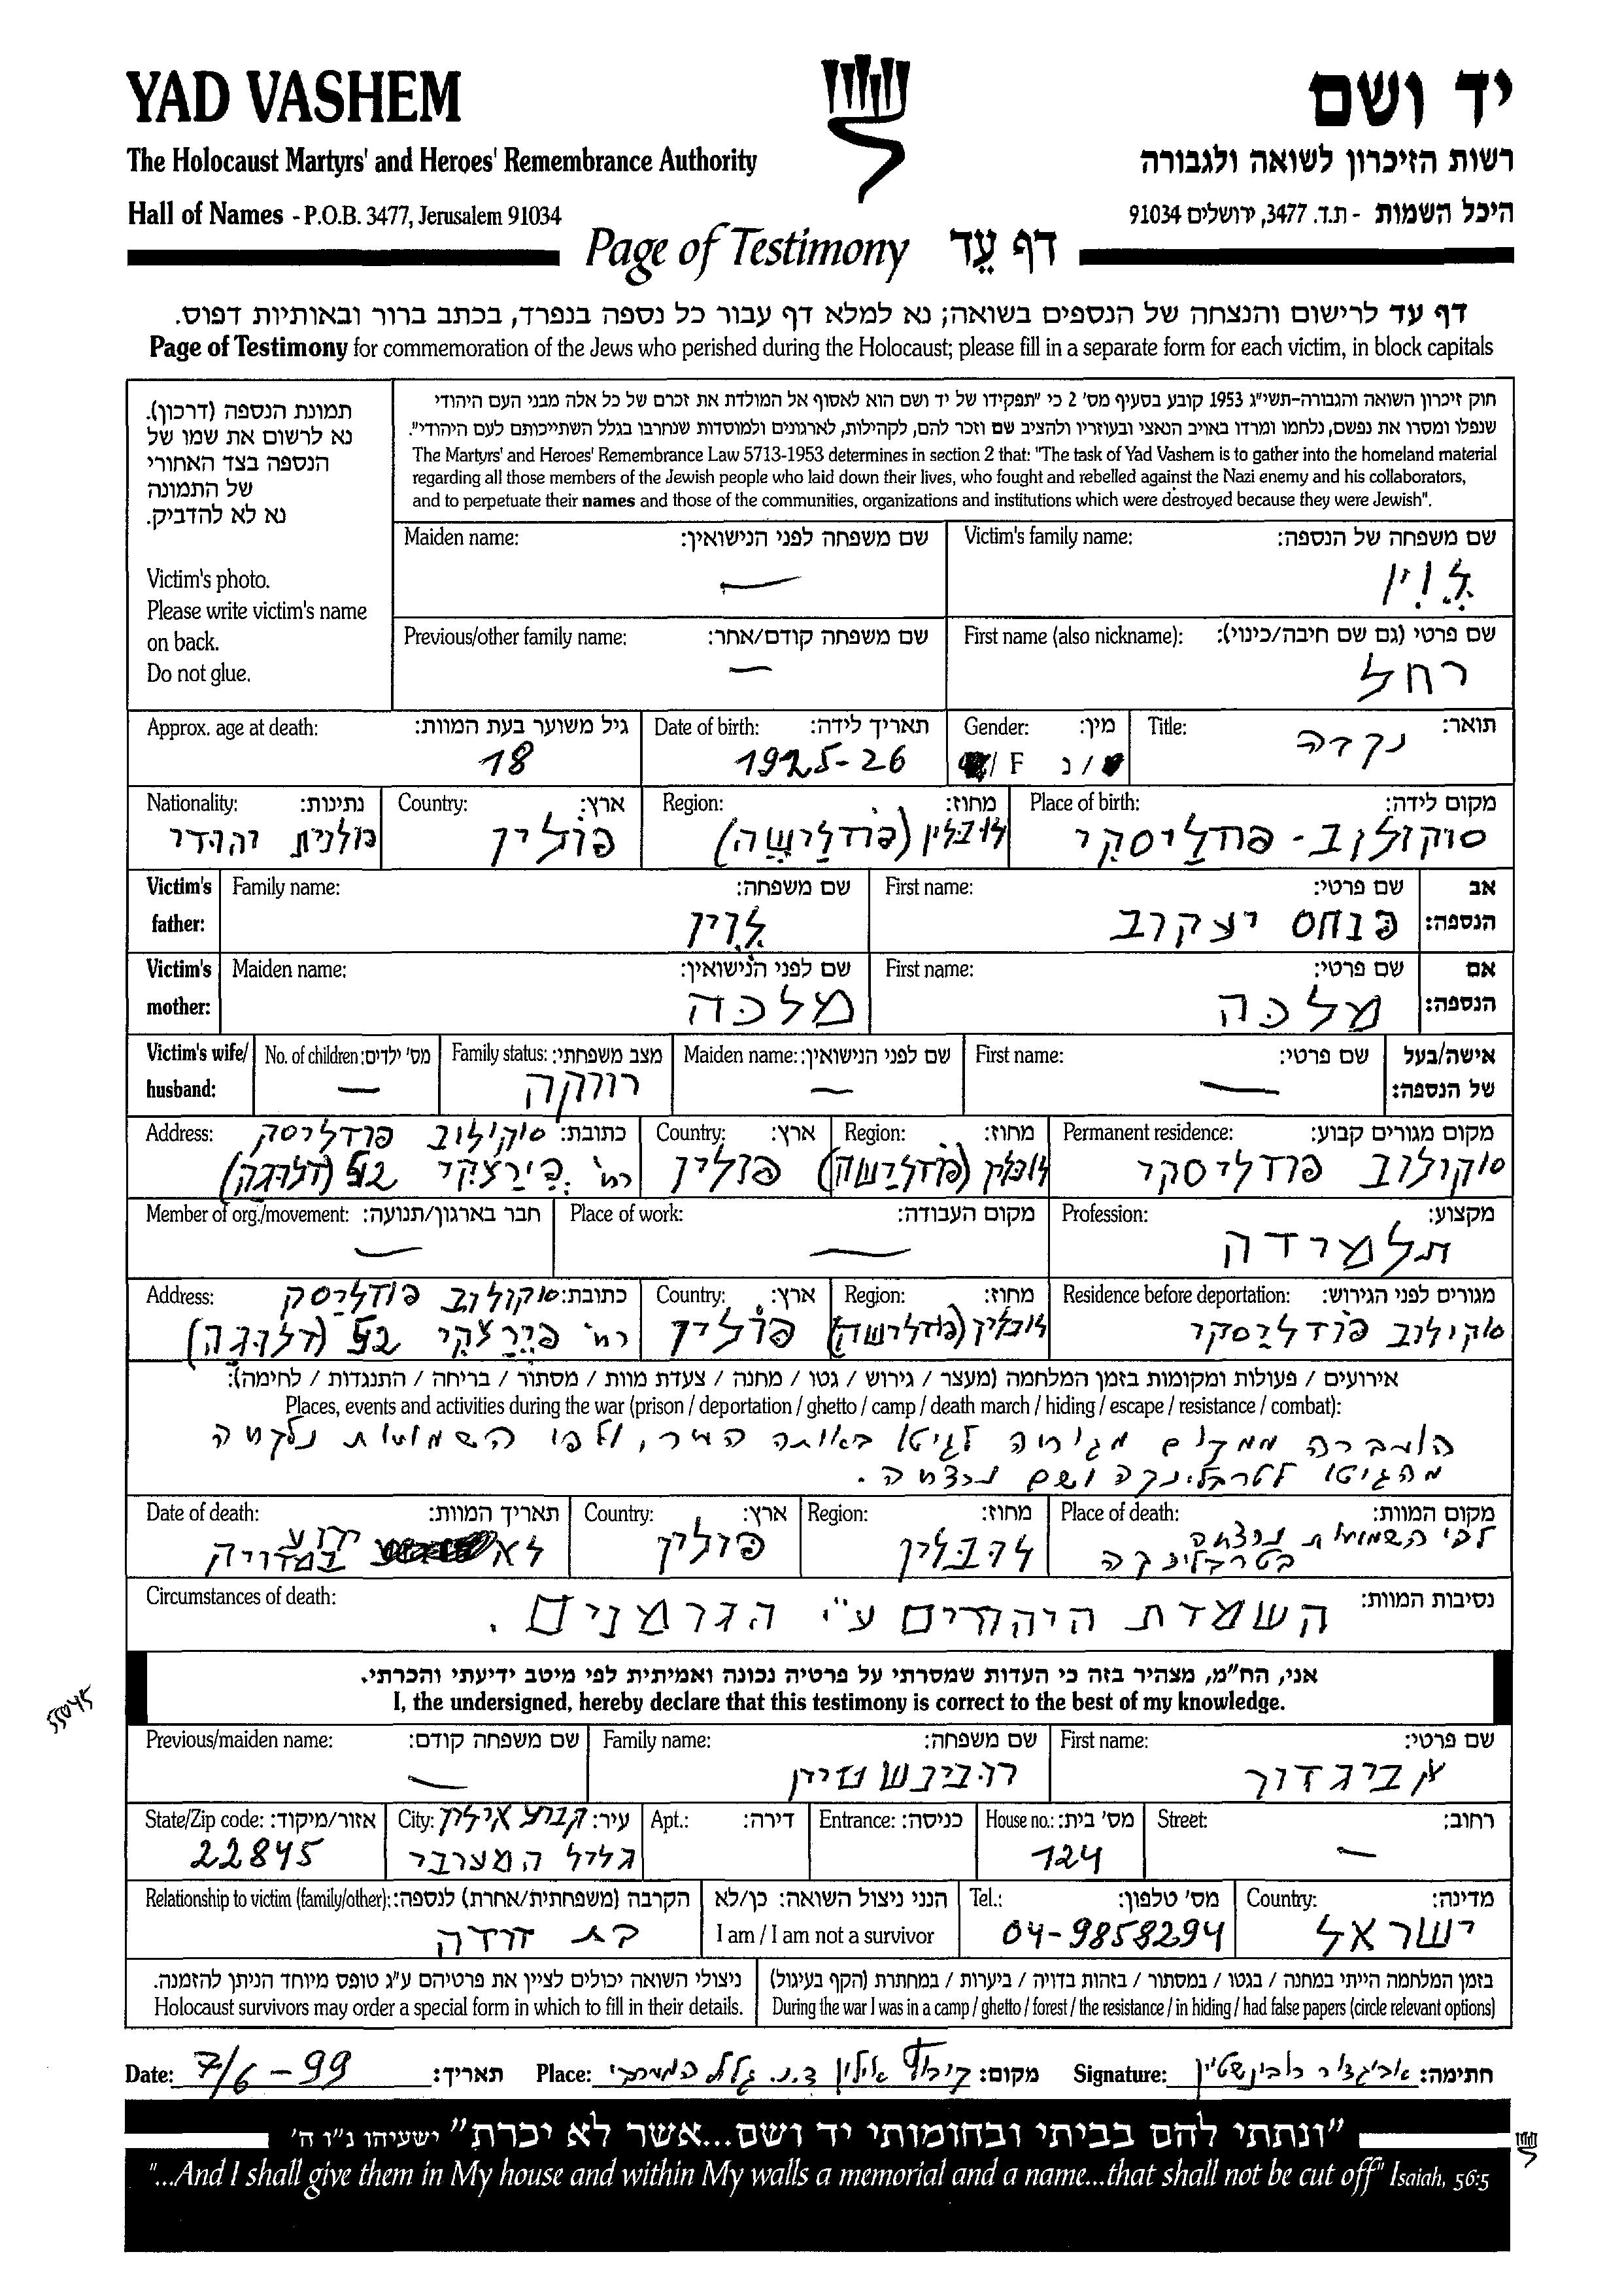 YAD VASHEM
יד ושם
The Holocaust Martyrs' and Heroes' Remembrance Authority
רשות הזיכרון לשואה ולגבורה
Hall of Names - P.O.B. 3477, Jerusalem 91034
היכל השמות - ת.ד. 3477, ירושלים 91034
Page of Testimony דף עֵד
דף עד לרישום והנצחה של הנספים בשואה; נא למלא דף עבור כל נספה בנפרד, בכתב ברור ובאותיות דפוס.
Page of Testimony for commemoration of the Jews who perished during the Holocaust; please fill in a separate form for each victim, in block capitals
תמונת הנספה (דרכון).
נא לרשום את שמו של
הנספה בצד האחורי
של התמונה
נא לא להדביק.
Victim's photo.
Please write victim's name
on back.
Do not glue.
חוק זיכרון השואה והגבורה-תשי"ג 1953 קובע בסעיף מס' 2 כי "תפקידו של יד ושם הוא לאסוף אל המולדת את זכרם של כל אלה מבני העם היהודי
שנפלו ומסרו את נפשם, נלחמו ומרדו באויב הנאצי ובעוזריו ולהציב שם וזכר להם, לקהילות, לארגונים ולמוסדות שנחרבו בגלל השתייכותם לעם היהודי".
The Martyrs' and Heroes' Remembrance Law 5713-1953 determines in section 2 that: "The task of Yad Vashem is to gather into the homeland material
regarding all those members of the Jewish people who laid down their lives, who fought and rebelled against the Nazi enemy and his collaborators,
and to perpetuate their names and those of the communities, organizations and institutions which were destroyed because they were Jewish".
Victim's family name: שם משפחה של הנספה:
לוין
Maiden name: שם משפחה לפני הנישואין:
—
First name (also nickname): שם פרטי (גם שם חיבה/כינוי):
רחל
Previous/other family name: שם משפחה קודם/אחר:
—
Title: תואר:
נקבה
Gender: מין:
/ F / נ
Date of birth: תאריך לידה:
1925-26
Approx. age at death: גיל משוער בעת המוות:
18
Place of birth: מקום לידה:
סוקולוב - פודליסקי
Region: מחוז:
לובלין (פודלישה)
Country: ארץ:
פולין
Nationality: נתינות:
פולנית יהודי
Victim's father: אב הנספה:
First name: שם פרטי:
פנחס יעקוב
Family name: שם משפחה:
לוין
Victim's mother: אם הנספה:
First name: שם פרטי:
מלכה
Maiden name: שם לפני הנישואין:
מלכה
Victim's wife/husband: אישה/בעל של הנספה:
First name: שם פרטי:
—
Maiden name: שם לפני הנישואין:
—
Family status: מצב משפחתי:
רווקה
No. of children: מס' ילדים:
—
Permanent residence: מקום מגורים קבוע:
סוקולוב פודליסקי
Region: מחוז:
לובלין (פודלישה)
Country: ארץ:
פולין
Address: כתובת: סוקולוב פודליסק
רח'
Profession: מקצוע:
תלמידה
Place of work: מקום העבודה:
—
Member of org./movement: חבר בארגון/תנועה:
—
Residence before deportation: מגורים לפני הגירוש:
סוקולוב פודליסקי
Region: מחוז:
לובלין (פודלישה)
Country: ארץ:
פולין
Address: כתובת: סוקולוב פודליסק
רח'
אירועים / פעולות ומקומות בזמן המלחמה (מעצר / גירוש / גטו / מחנה / צעדת מוות / מסתור / בריחה / התנגדות / לחימה):
Places, events and activities during the war (prison / deportation / ghetto / camp / death march / hiding / escape / resistance / combat):
הועברה ממקום מגוריה לגיטו באותה העיר, ולפי השמועות נלקחה
מהגיטו לטרבלינקה ושם נרצחה.
Place of death: מקום המוות:
לפי השמועות נרצחה
בטרבלינקה
Region: מחוז:
לובלין
Country: ארץ:
פולין
Date of death: תאריך המוות:
לא ידוע
במדויק
Circumstances of death: נסיבות המוות:
השמדת היהודים ע"י הגרמנים.
אני, הח"מ, מצהיר בזה כי העדות שמסרתי על פרטיה נכונה ואמיתית לפי מיטב ידיעתי והכרתי.
I, the undersigned, hereby declare that this testimony is correct to the best of my knowledge.
55045
First name: שם פרטי:
אביגדור
Family name: שם משפחה:
רובינשטיין
Previous/maiden name: שם משפחה קודם:
—
Street: רחוב:
—
House no.: מס' בית:
124
Entrance: כניסה:
Apt.: דירה:
City: עיר: קבוצ אילון
גליל המערבי
State/Zip code: אזור/מיקוד:
22845
Country: מדינה:
ישראל
Tel.: מס' טלפון:
04-9858294
הנני ניצול השואה: כן/לא
I am / I am not a survivor
Relationship to victim (family/other): הקרבה (משפחתית/אחרת) לנספה:
בת דודה
בזמן המלחמה הייתי במחנה / בגטו / במסתור / בזהות בדויה / ביערות / במחתרת (הקף בעיגול)
During the war I was in a camp / ghetto / forest / the resistance / in hiding / had false papers (circle relevant options)
ניצולי השואה יכולים לציין את פרטיהם ע"ג טופס מיוחד הניתן להזמנה.
Holocaust survivors may order a special form in which to fill in their details.
Date: 7/6-99 תאריך:
Place: אילון ד.נ. גליל המערבי מקום:
Signature: אביגדור רובינשטיין חתימה:
"ונתתי להם בביתי ובחומותי יד ושם...אשר לא יכרת" ישעיהו נ"ו ה'
"...And I shall give them in My house and within My walls a memorial and a name...that shall not be cut off" Isaiah, 56:5